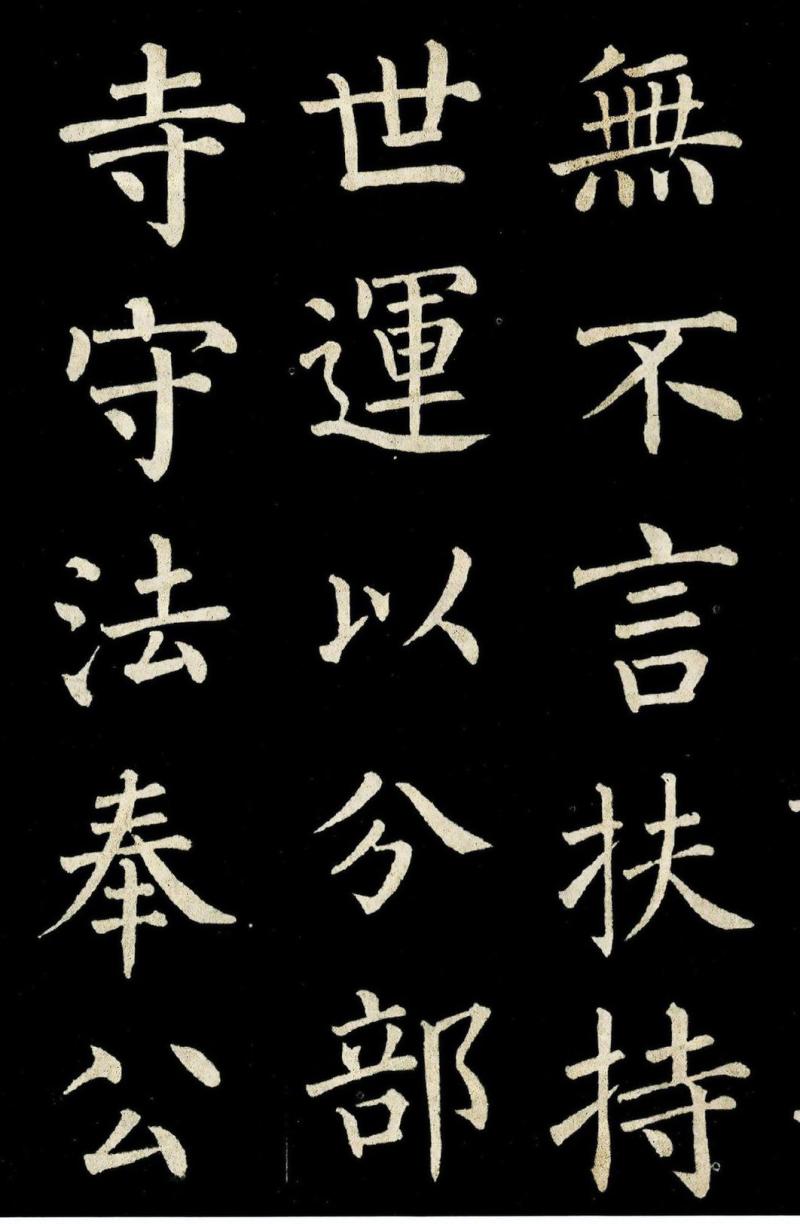 無不言扶持
世運以分部
寺守法奉公